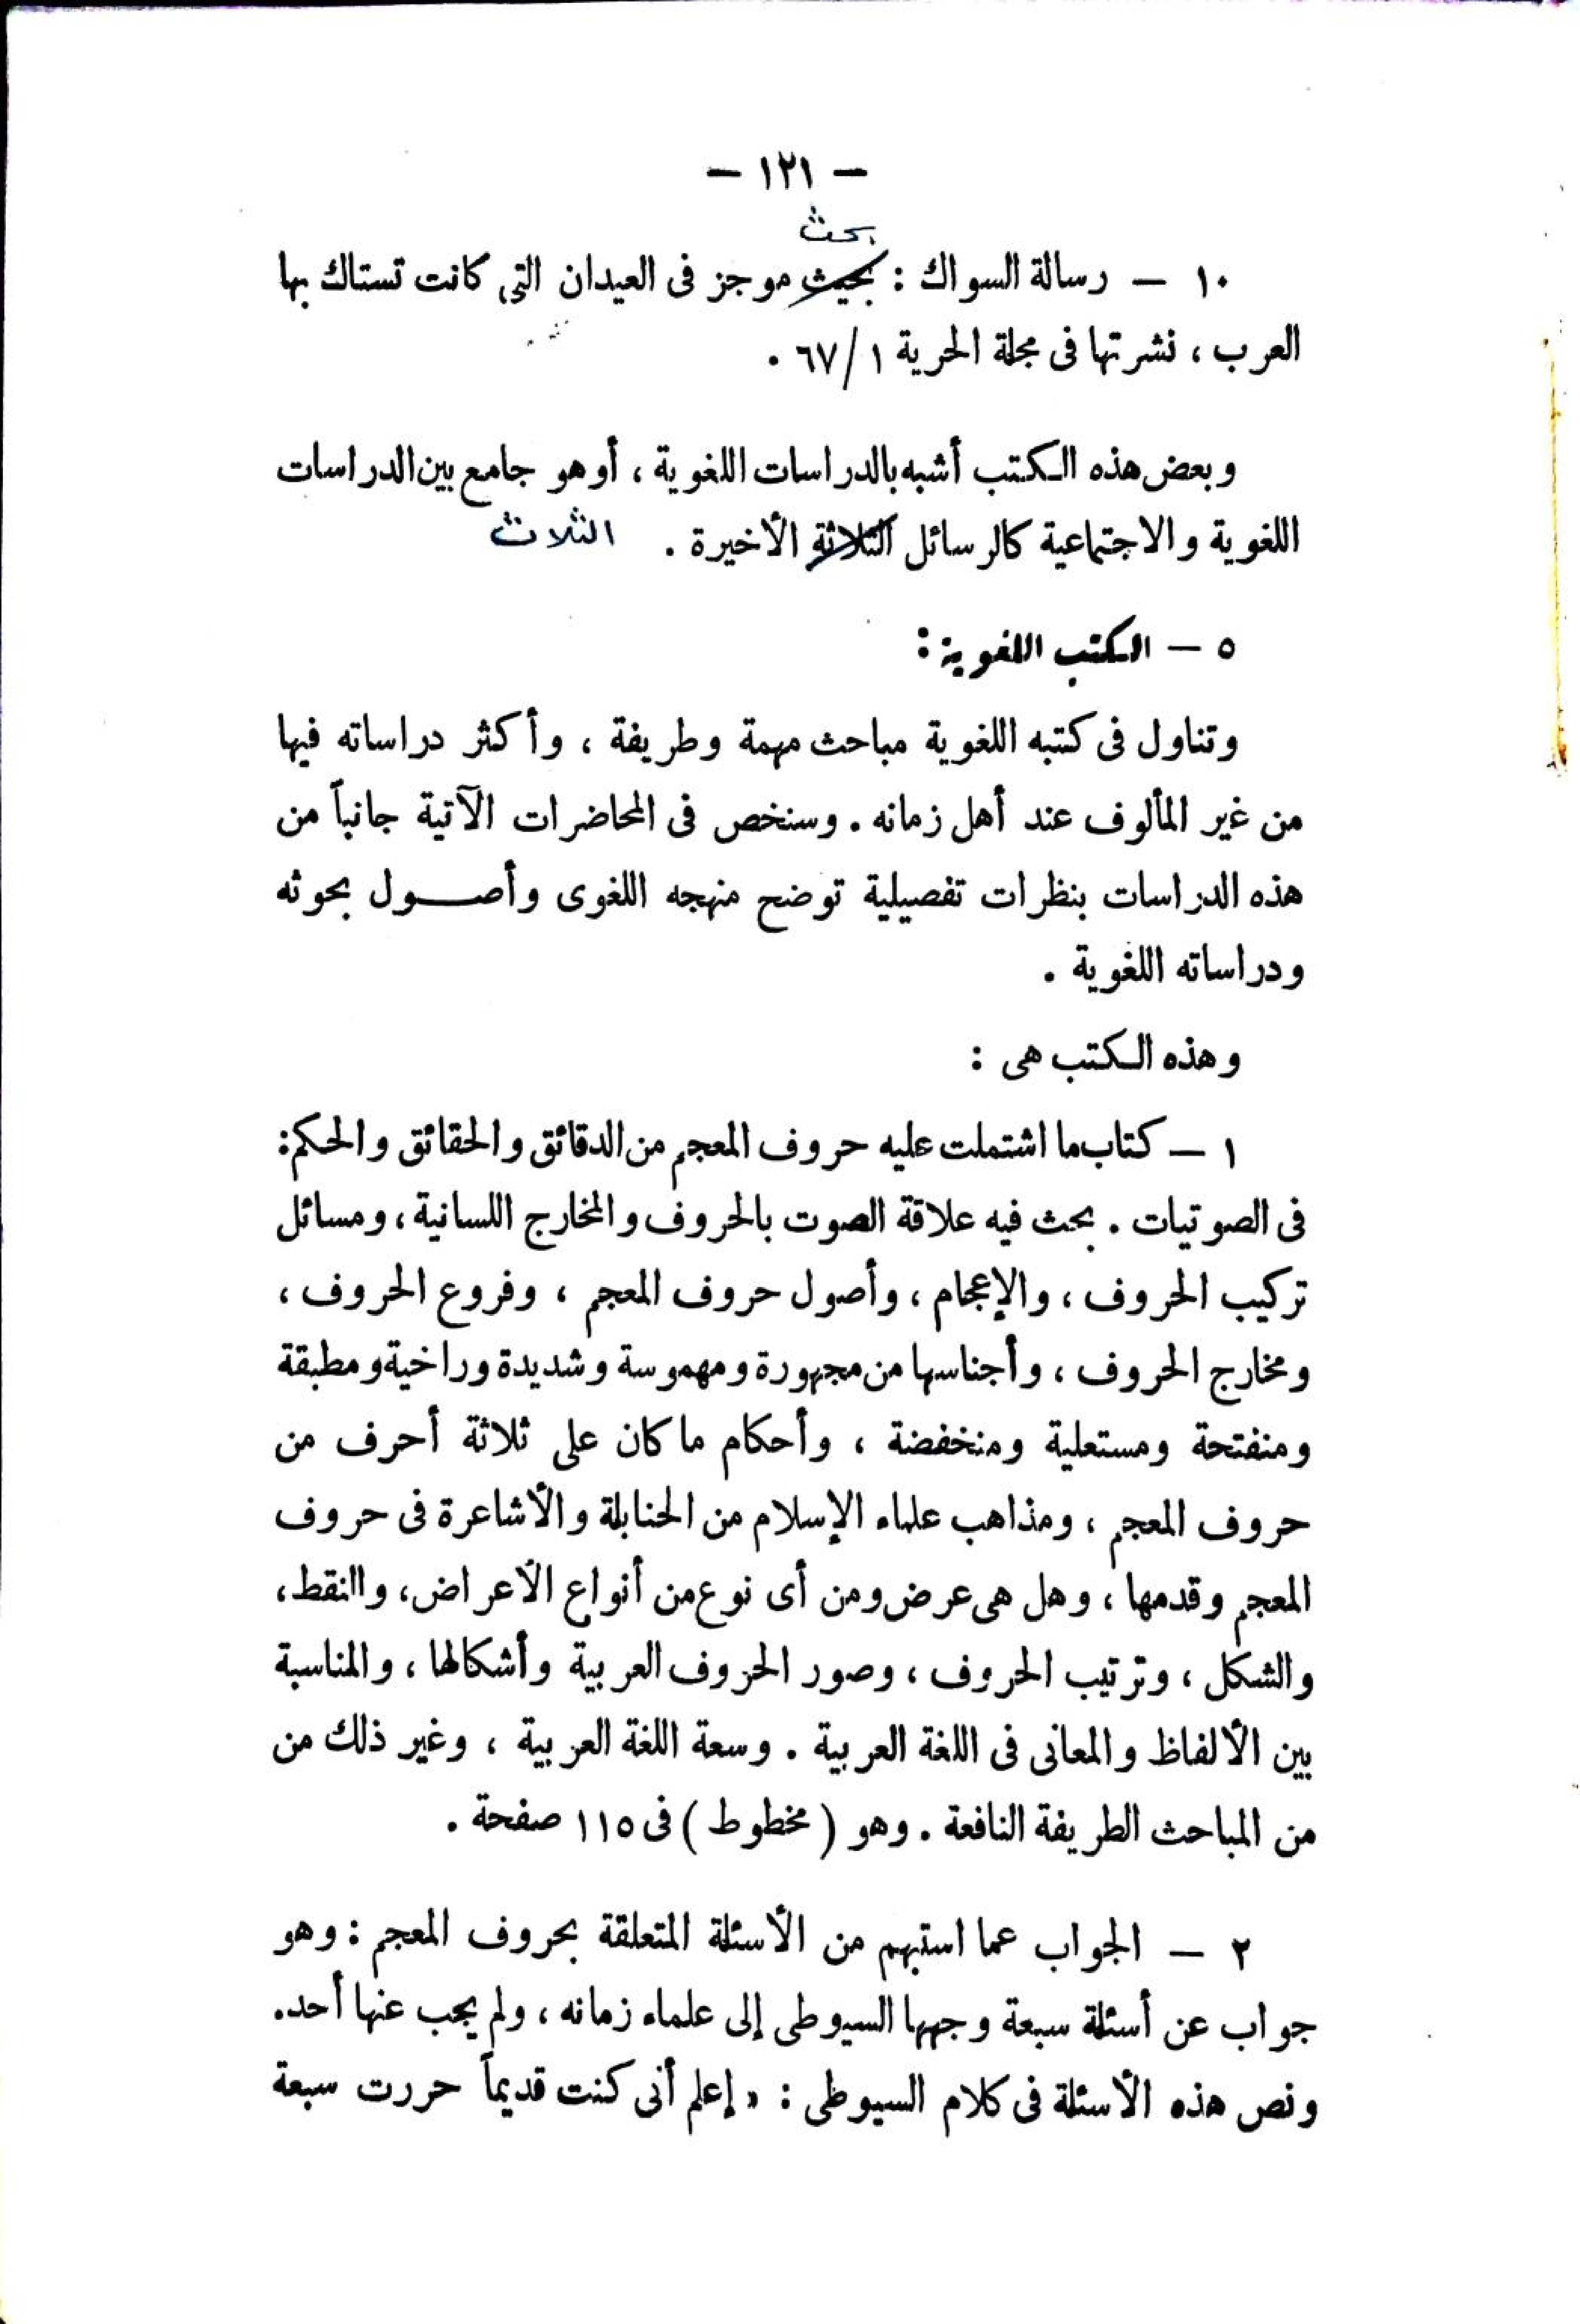 — ١٢١ —
بحث
١٠ — رسالة السواك : بحيث موجز فى العيدان التى كانت تستاك بها
العرب ، نشرتها فى مجلة الحرية ١ /٦٧ .
وبعض هذه الكتب أشبه بالدراسات اللغوية ، أو هو جامع بين الدراسات
اللغوية والاجتماعية كالرسائل الثلاثة الأخيرة . الثلاث
٥ — الكتب اللغوية :
وتناول فى كتبه اللغوية مباحث مهمة وطريفة ، وأكثر دراساته فيها
من غير المألوف عند أهل زمانه . وسنخص فى المحاضرات الآتية جانباً من
هذه الدراسات بنظرات تفصيلية توضح منهجه اللغوى وأصــول بحوثه
ودراساته اللغوية .
وهذه الكتب هى :
١ — كتاب ما اشتملت عليه حروف المعجم من الدقائق والحقائق والحكم:
فى الصوتيات . بحث فيه علاقة الصوت بالحروف والمخارج اللسانية ، ومسائل
تركيب الحروف ، والإعجام ، وأصول حروف المعجم ، وفروع الحروف ،
ومخارج الحروف ، وأجناسها من مجهورة ومهموسة وشديدة وراخية ومطبقة
ومنفتحة ومستعلية ومنخفضة ، وأحكام ما كان على ثلاثة أحرف من
حروف المعجم ، ومذاهب علماء الإسلام من الحنابلة والأشاعرة فى حروف
المعجم وقدمها ، وهل هى عرض ومن أى نوع من أنواع الأعراض ، واانقط ،
والشكل ، وترتيب الحروف ، وصور الحروف العربية وأشكالها ، والمناسبة
بين الألفاظ والمعانى فى اللغة العربية . وسعة اللغة العربية ، وغير ذلك من
من المباحث الطريفة النافعة . وهو ( مخطوط ) فى ١١٥ صفحة .
٢ — الجواب عما استبهم من الأسئلة المتعلقة بحروف المعجم : وهو
جواب عن أسئلة سبعة وجهها السيوطى إلى علماء زمانه ، ولم يجب عنها أحد.
ونص هذه الأسئلة فى كلام السيوطى : « إعلم أنى كنت قديماً حررت سبعة